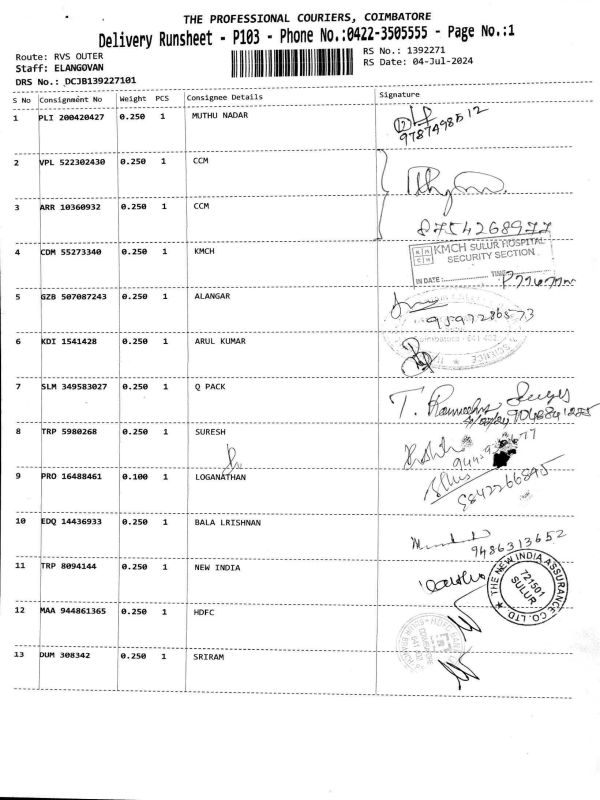 THE PROFESSIONAL COURIERS, COIMBATORE
Delivery Runsheet - P103 - Phone No.:0422-3505555 - Page No.:1
Route: RVS OUTER
RS No.: 1392271
Staff: ELANGOVAN
RS Date: 04-Jul-2024
DRS No.: DCJB139227101
S No Consignment No Weight PCS Consignee Details Signature
1 PLI 200420427 0.250 1 MUTHU NADAR
9787498512
2 VPL 522302430 0.250 1 CCM
3 ARR 10360932 0.250 1 CCM
8754268977
4 CDM 55273340 0.250 1 KMCH
KMCH SULUR HOSPITAL
SECURITY SECTION
IN DATE: TIME
5 GZB 507087243 0.250 1 ALANGAR
9597286573
6 KDI 1541428 0.250 1 ARUL KUMAR
7 SLM 349583027 0.250 1 Q PACK
8 TRP 5980268 0.250 1 SURESH
9 PRO 16488461 0.100 1 LOGANATHAN
9842266895
10 EDQ 14436933 0.250 1 BALA LRISHNAN
9486313652
11 TRP 8094144 0.250 1 NEW INDIA
THE NEW INDIA ASSURANCE CO. LTD.
721501
SULUR
12 MAA 944861365 0.250 1 HDFC
13 DUM 308342 0.250 1 SRIRAM